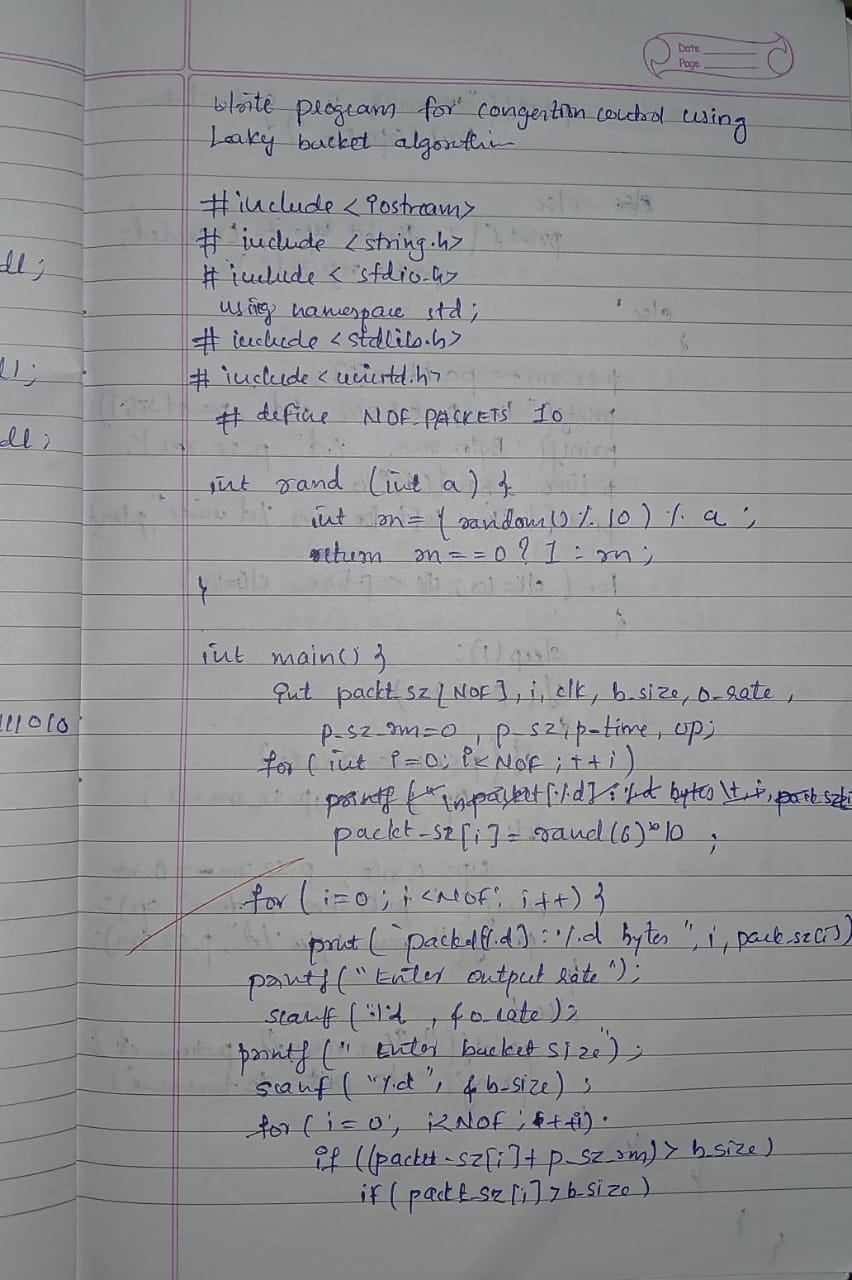 Date
Page
Write program for congestion control using
Leaky bucket algorithm
#include <iostream>
# include <string.h>
# include < stdio.h>
using namespace std;
# include <stdlib.h>
# include <unistd.h>
# define NOF_PACKETS 10
int rand (int a) {
int rn = ( random() % 10 ) % a ;
return rn == 0 ? 1 : rn ;
}
int main() {
int packt_sz [NOF], i, clk, b_size, o_rate ,
p_sz_rm=0 , p_sz, p-time, op;
for ( int i=0; i<NOF ; ++i)
printf ("\n packet[%d] : %d bytes \t, i, pack_sz[i
packt-sz[i] = rand(6)*10 ;
for ( i=0 ; i <NOF; i++) {
print ( "packet[%d] : %d bytes ", i, pack_sz[i])
printf (" Enter output rate ");
scanf ( "%d , &o_rate );
printf (" Enter bucket size");
scanf ( "%d", & b-size) ;
for ( i = 0 ; i<NOF ; ++i)
if ((packet-sz[i]+ p_sz_rm) > b_size)
if ( packt_sz [i] > b-size)
dl;
l);
dl;
111010